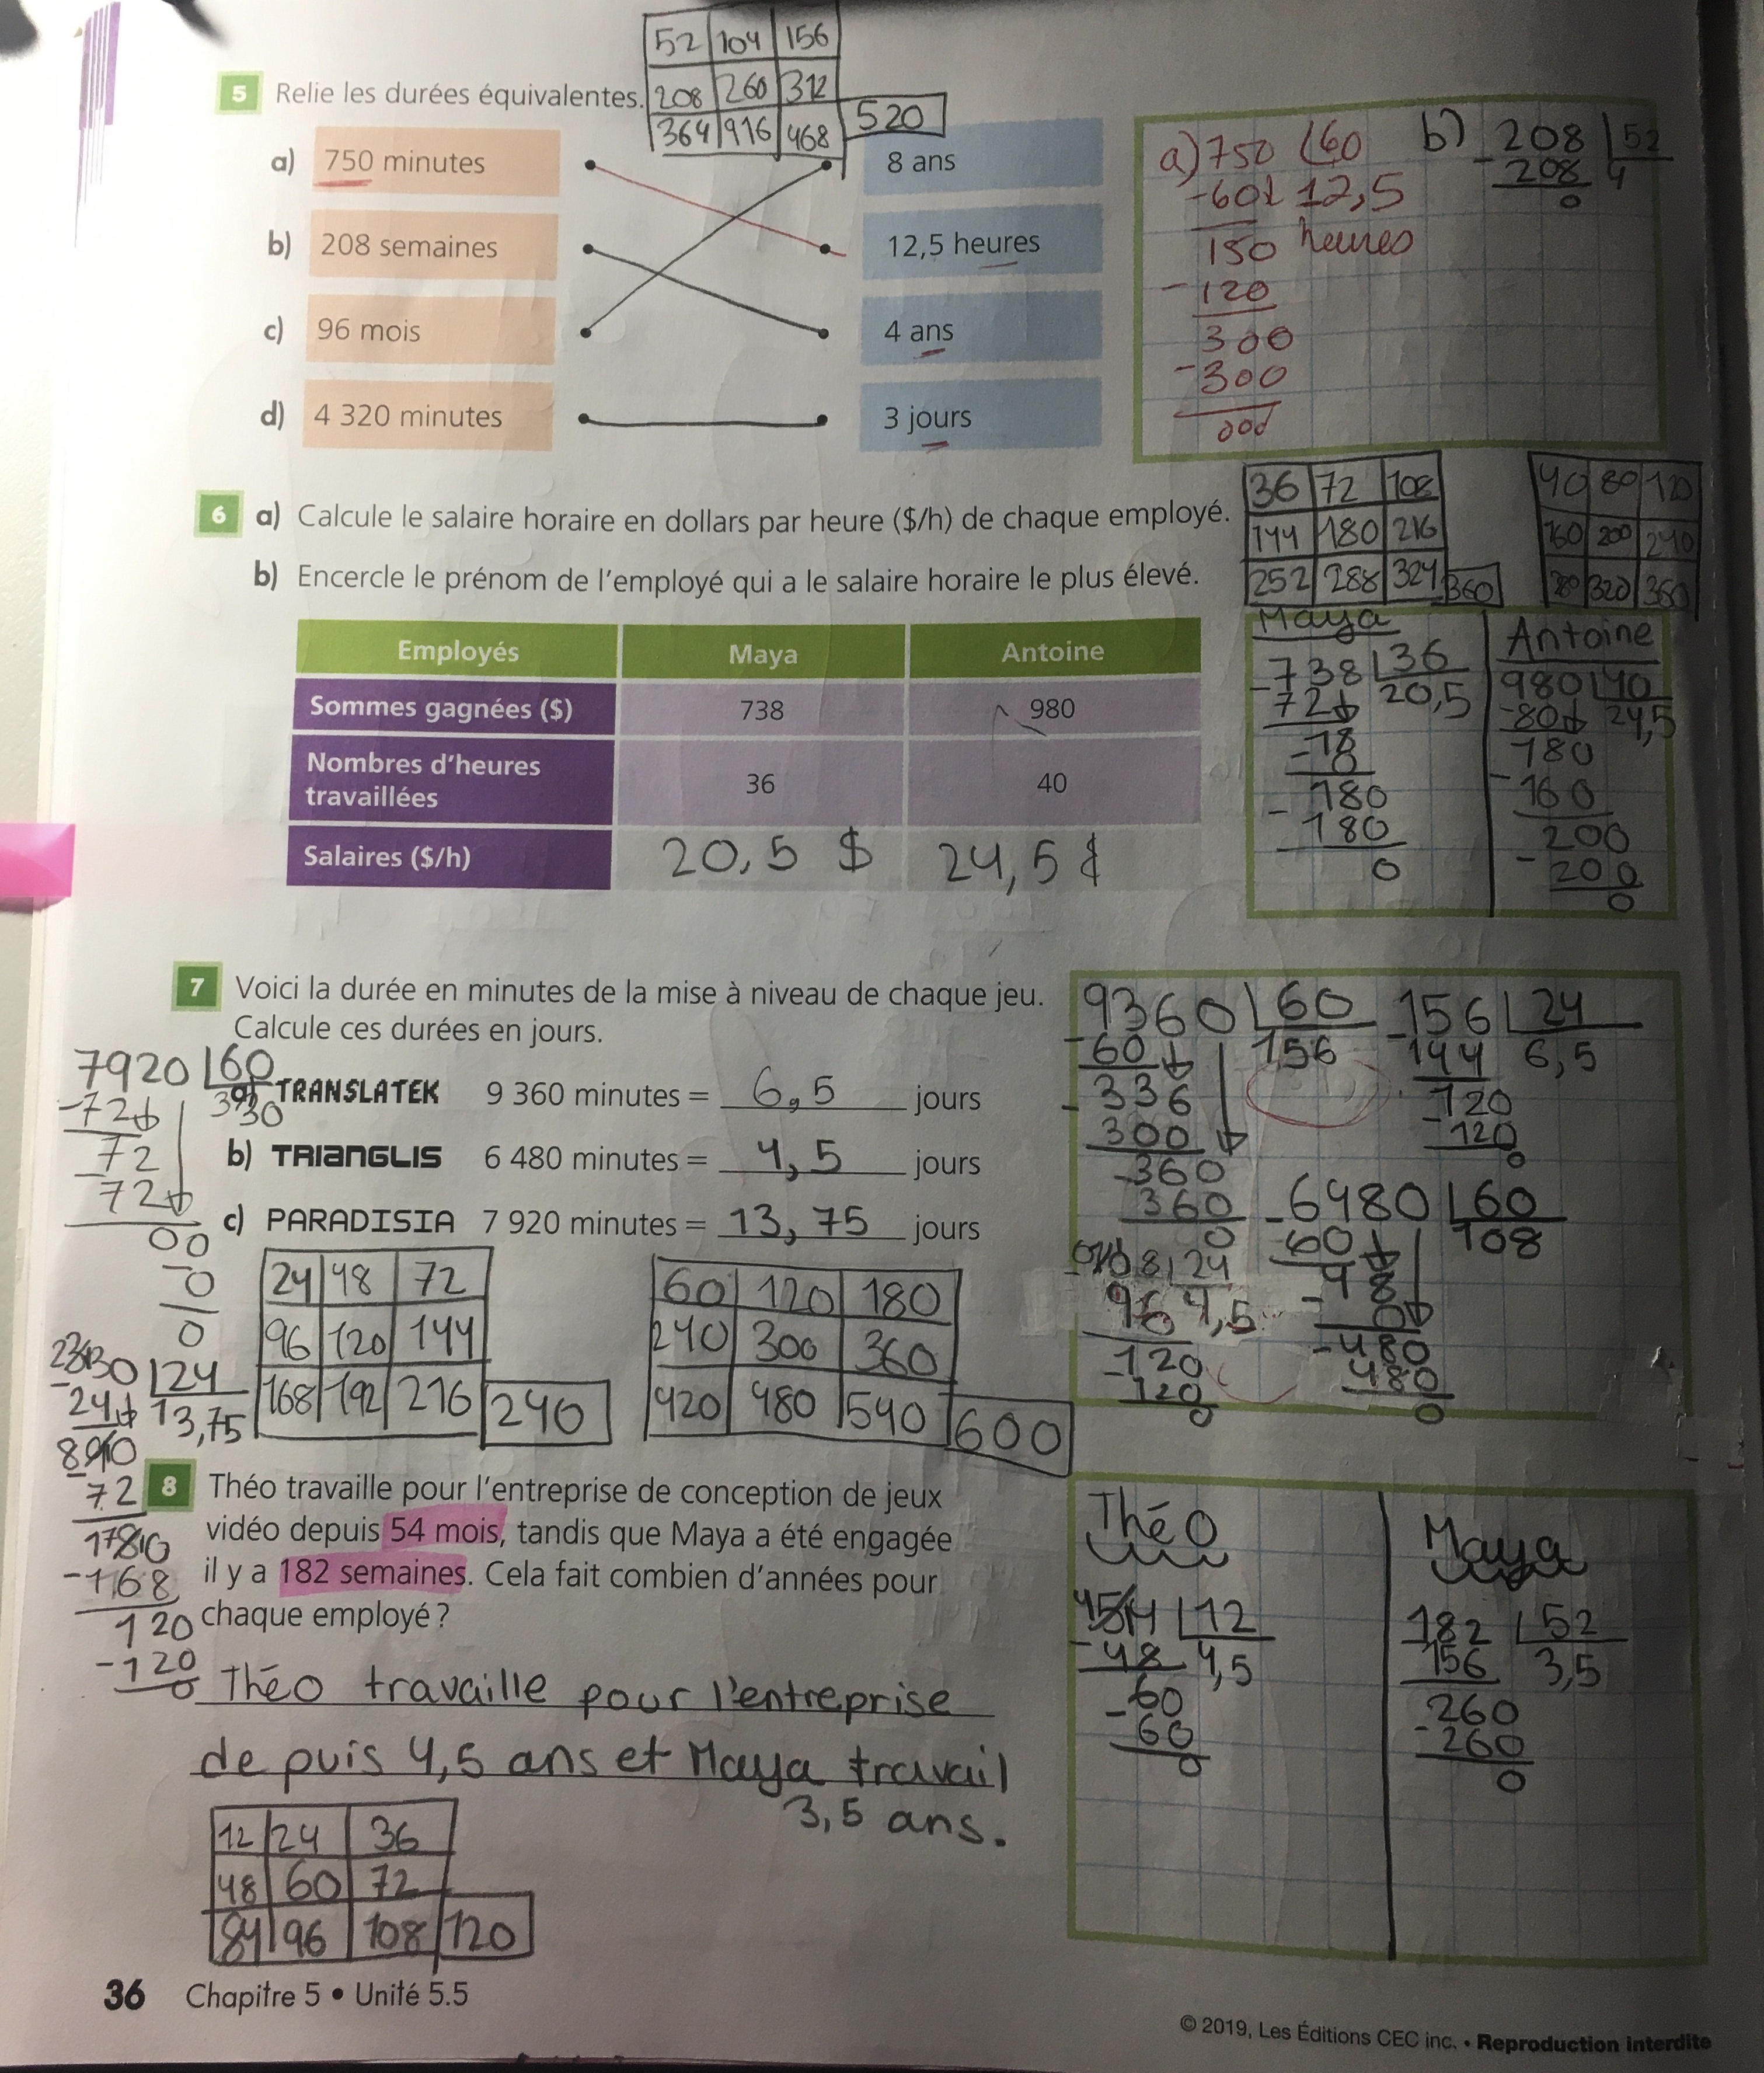 52 104 156
208 260 312
364 916 468 520
5 Relie les durées équivalentes.
a) 750 minutes
b) 208 semaines
c) 96 mois
d) 4 320 minutes
8 ans
12,5 heures
4 ans
3 jours
a) 750 60
-60 12,5
150 heures
-120
300
-300
000
b) 208 52
- 208 4
0
6 a) Calcule le salaire horaire en dollars par heure ($/h) de chaque employé.
b) Encercle le prénom de l'employé qui a le salaire horaire le plus élevé.
36 72 108
144 180 216
252 288 324 360
40 80 120
160 200 240
280 320 360
Employés Maya Antoine
Sommes gagnées ($) 738 980
Nombres d'heures
travaillées 36 40
Salaires ($/h) 20,5 $ 24,5 $
Maya
738 36
-72 20,5
-18
0
180
-180
0
Antoine
980 40
-80 24,5
180
-160
200
-200
0
7 Voici la durée en minutes de la mise à niveau de chaque jeu.
Calcule ces durées en jours.
a) TRANSLATEK 9 360 minutes = 6,5 jours
b) TRIANGLIS 6 480 minutes = 4,5 jours
c) PARADISIA 7 920 minutes = 13,75 jours
7920 60
-72 30
72
-72
00
-0
0
30 24
-24 13,75
90
-72
180
-168
120
-120
0
24 48 72
96 120 144
168 192 216 240
60 120 180
240 300 360
420 480 540 600
9360 60
-60 156
336
-300
-360
360
0
156 24
-144 6,5
120
-120
0
6480 60
-60 108
48
-0
-480
480
0
108 24
-96 4,5
120
-120
0
8 Théo travaille pour l'entreprise de conception de jeux
vidéo depuis 54 mois, tandis que Maya a été engagée
il y a 182 semaines. Cela fait combien d'années pour
chaque employé ?
Théo travaille pour l'entreprise
depuis 4,5 ans et Maya travail
3,5 ans.
Théo
54 12
-48 4,5
60
-60
0
Maya
182 52
156 3,5
260
-260
0
12 24 36
48 60 72
84 96 108 120
36 Chapitre 5 • Unité 5.5
© 2019, Les Éditions CEC inc. • Reproduction interdite